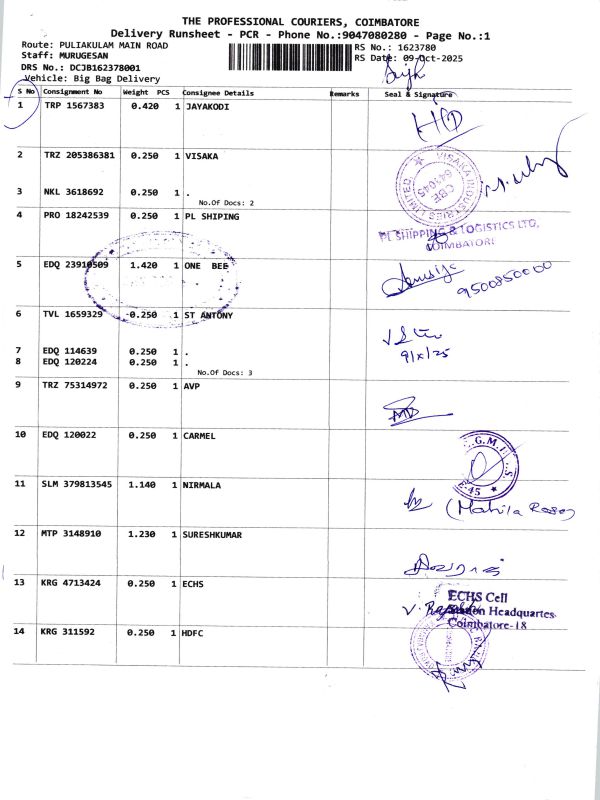 THE PROFESSIONAL COURIERS, COIMBATORE
Delivery Runsheet - PCR - Phone No.:9047080280 - Page No.:1
Route: PULIAKULAM MAIN ROAD
RS No.: 1623780
Staff: MURUGESAN
RS Date: 09-Oct-2025
DRS No.: DCJB162378001
Vehicle: Big Bag Delivery
S No Consignment No Weight PCS Consignee Details Remarks Seal & Signature
1 TRP 1567383 0.420 1 JAYAKODI
2 TRZ 205386381 0.250 1 VISAKA
VISAKA INDUSTRIES LIMITED
CBE
641045
3 NKL 3618692 0.250 1 .
No.Of Docs: 2
4 PRO 18242539 0.250 1 PL SHIPING
PL SHIPPING & LOGISTICS LTD,
COIMBATORE
5 EDQ 23910509 1.420 1 ONE BEE
9500850000
6 TVL 1659329 0.250 1 ST ANTONY
9/x/25
7 EDQ 114639 0.250 1 .
8 EDQ 120224 0.250 1 .
No.Of Docs: 3
9 TRZ 75314972 0.250 1 AVP
10 EDQ 120022 0.250 1 CARMEL
11 SLM 379813545 1.140 1 NIRMALA
(Mahila Rose)
12 MTP 3148910 1.230 1 SURESHKUMAR
13 KRG 4713424 0.250 1 ECHS
ECHS Cell
Station Headquartes
Coimbatore-18
14 KRG 311592 0.250 1 HDFC